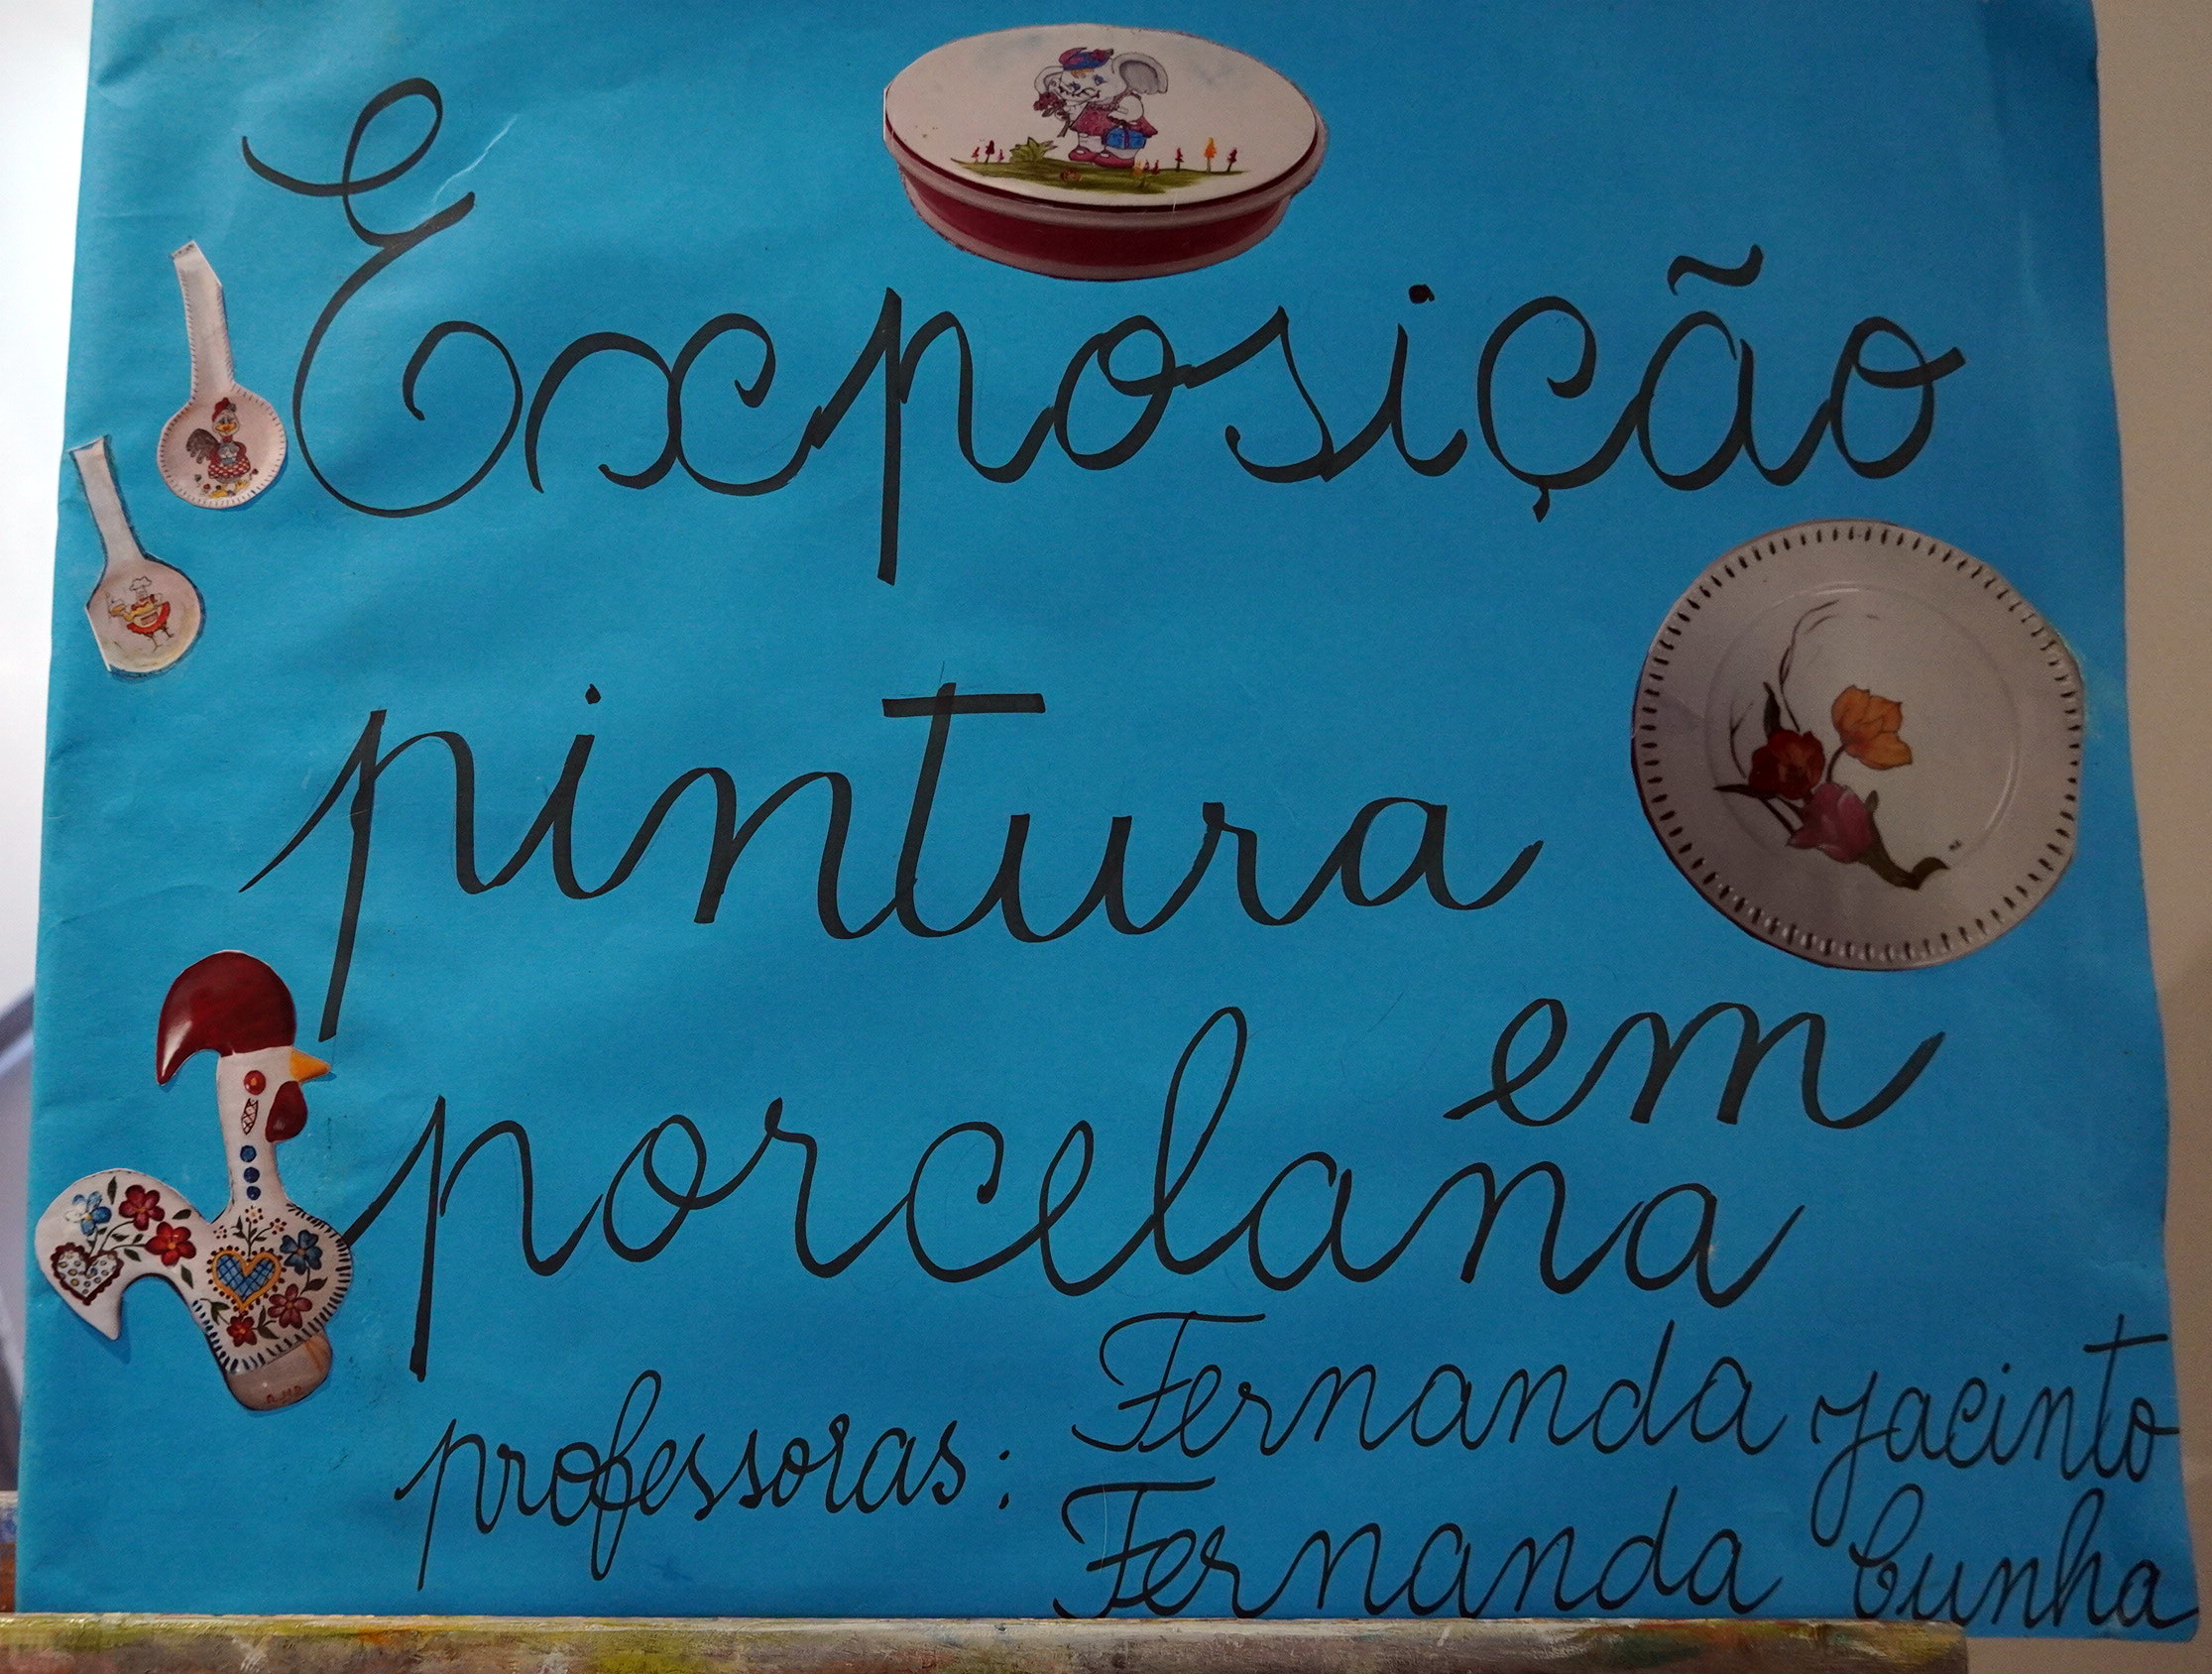 Exposição
pintura
em
porcelana
professoras: Fernanda Jacinto
Fernanda Cunha